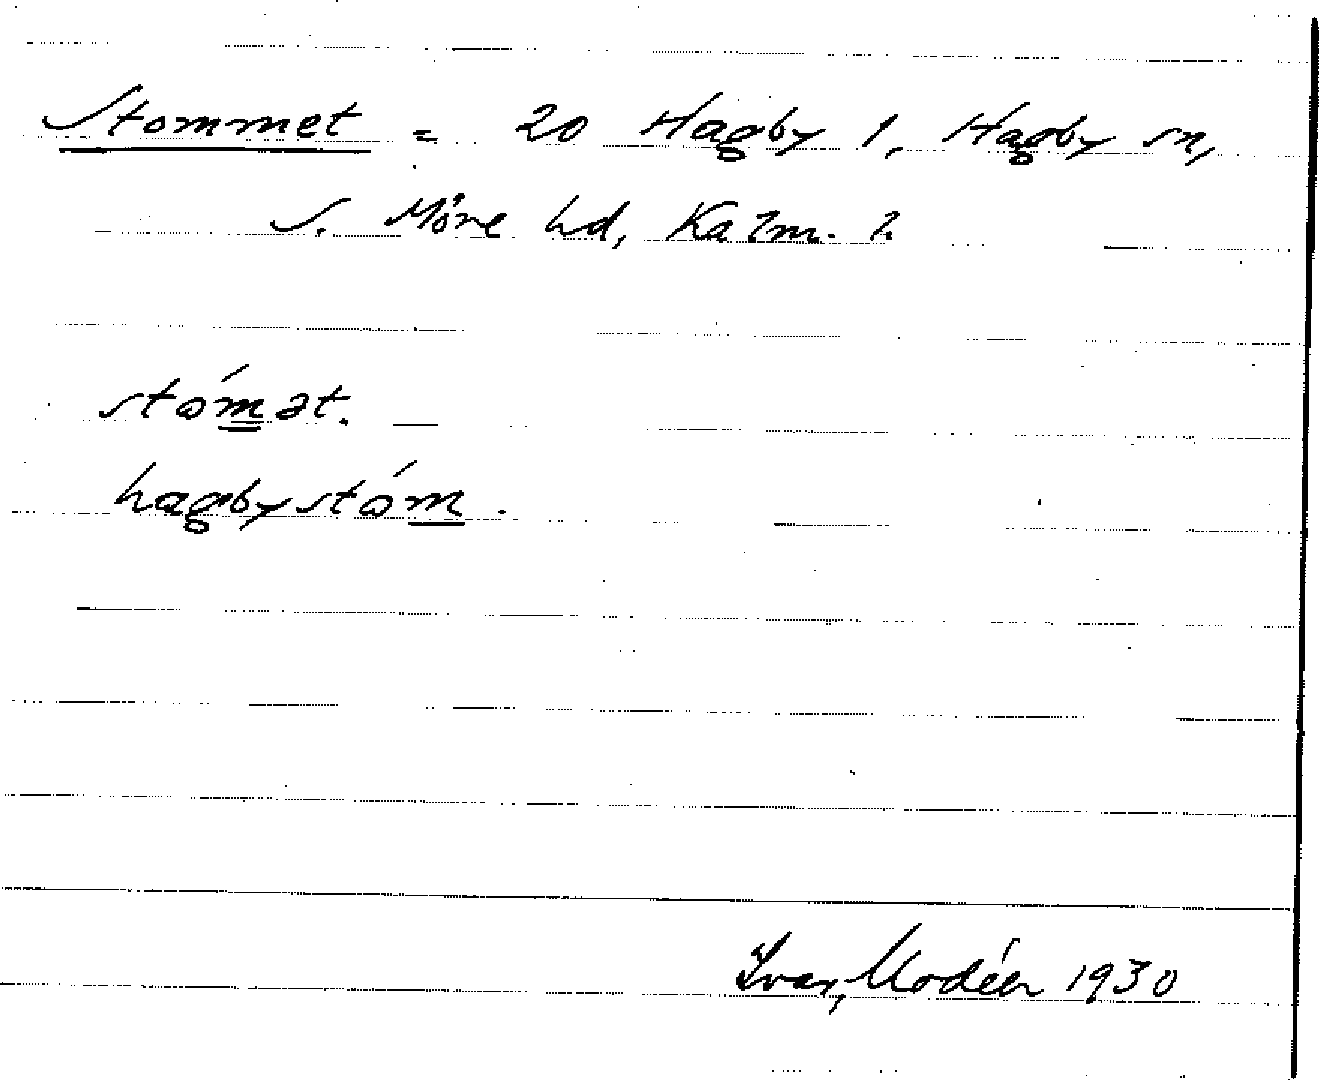 Stommet = 20 Hagby 1, Hagby sn,
S. Möre hd, Kalm. l.
stómət.
hagbystóm.
Ivar Modéer 1930